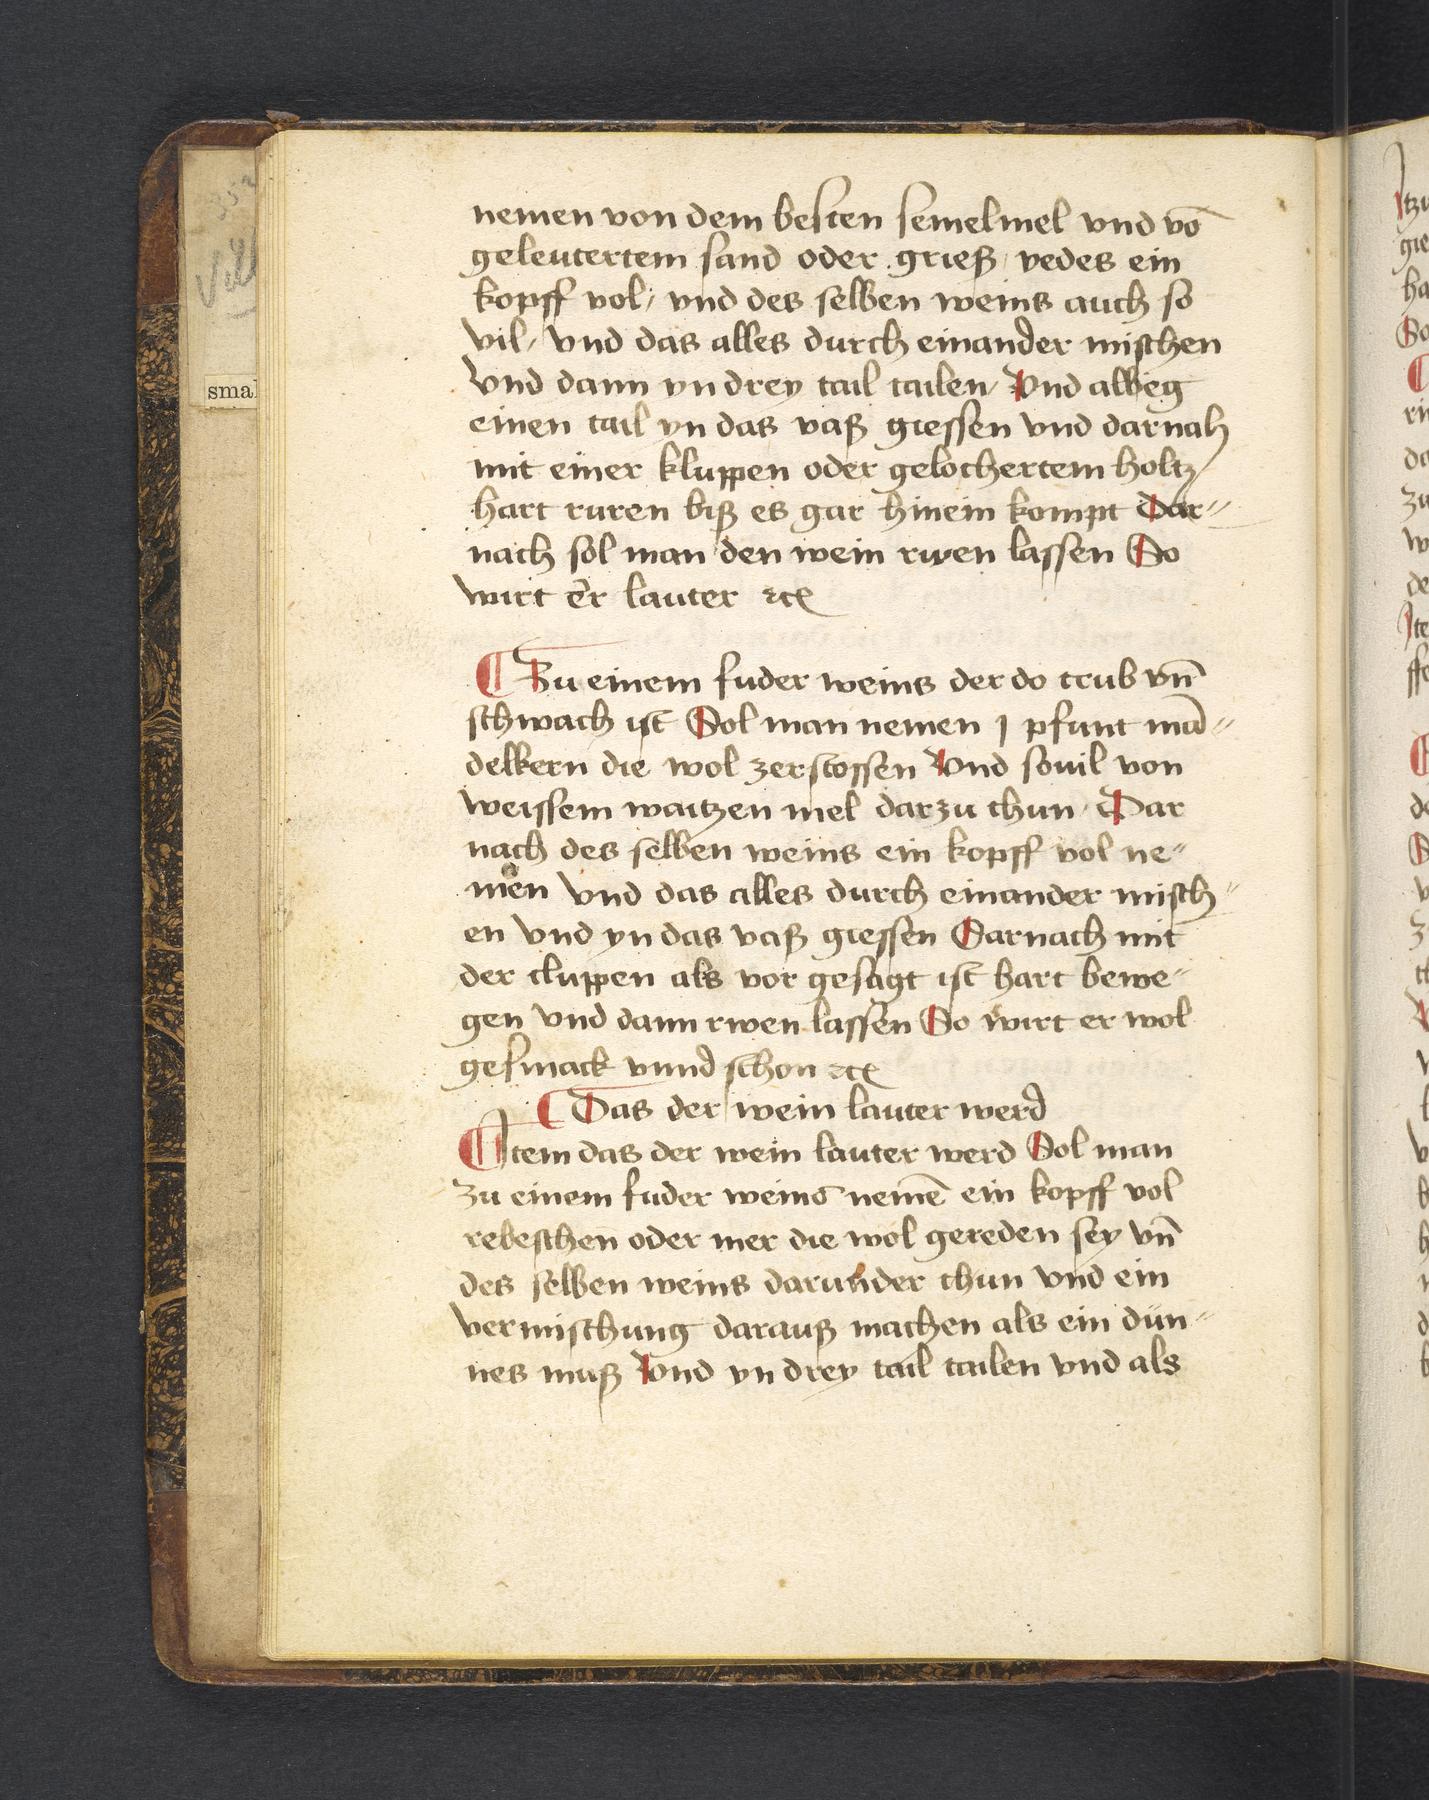 nemen von dem besten semelmel vnd vō
geleutertem sand oder grieß / yedes ein
kopff vol / vnd des selben weins auch so
vil / vnd das alles durch einander mischen
vnd dann yn drey tail tailen / Vnd albeg
einen tail yn das vaß giessen vnd darnah
mit einer kluppen oder gelochertem holtz /
hart ruren biß es gar hinein kompt Dar⸗
nach sol man den wein rwen lassen So
wirt er lauter ꝛcꝭ
¶ Zu einem fuder weins der do trub vn̄
schwach ist Sol man nemen j pfunt mā⸗
delkern die wol zerstossen Vnd souil von
weissem waitzen mel darzu thun / Dar
nach des selben weins ein kopff vol ne⸗
men vnd das alles durch einander misch⸗
en vnd yn das vaß giessen Darnach mit
der cluppen als vor gesagt ist hart bewe⸗
gen vnd dann rwen lassen So wirt er wol
gesmack vnnd schon ꝛcꝭ
¶ Das der wein lauter werd
¶ Item das der wein lauter werd Sol man
zu einem fuder weins nemē ein kopff vol
rebeschen oder mer die wol gereden sey vn̄
des selben weins darunder thun vnd ein
vermischung darauß machen als ein dün⸗
nes muß Vnd yn drey tail tailen vnd als
smal